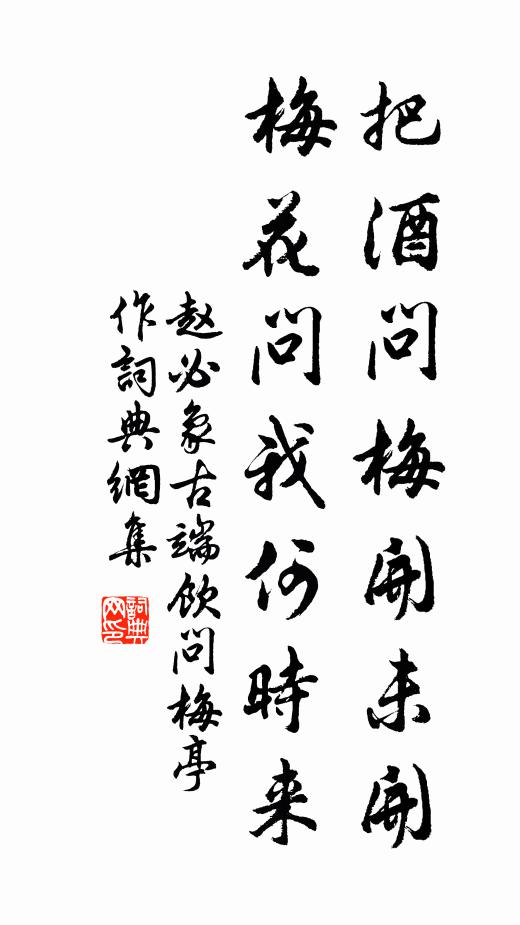 把酒問梅開未開
梅花問我何時来
赵必象古端飲問梅亭
作詞典網集
詞典
网印